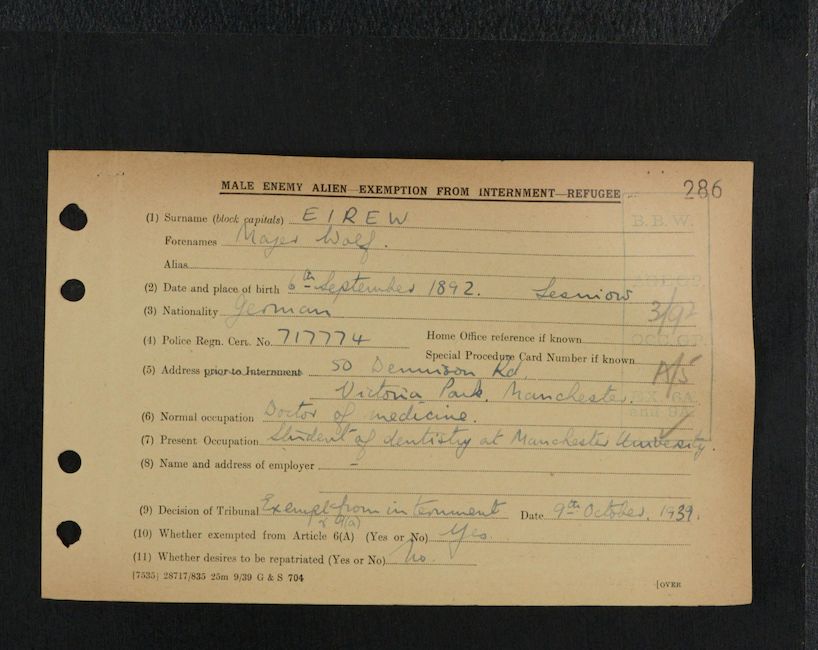 MALE ENEMY ALIEN—EXEMPTION FROM INTERNMENT—REFUGEE 286
(1) Surname (block capitals) EIREW
B.B.W.
Forenames Majer Wolf.
Alias
(2) Date and place of birth 6th September 1892. Lesniow
(3) Nationality German
3/92
(4) Police Regn. Cert. No. 717774 Home Office reference if known
Special Procedure Card Number if known
(5) Address prior to Internment 50 Dennison Rd.
Victoria Park, Manchester.
and 8A.
(6) Normal occupation Doctor of medicine.
(7) Present Occupation Student of dentistry at Manchester University.
(8) Name and address of employer –
(9) Decision of Tribunal Exempt from internment Date 9th October, 1939.
& 9(a)
(10) Whether exempted from Article 6(A) (Yes or No) Yes.
(11) Whether desires to be repatriated (Yes or No) No.
(7535) 28717/835 25m 9/39 G & S 704
[OVER